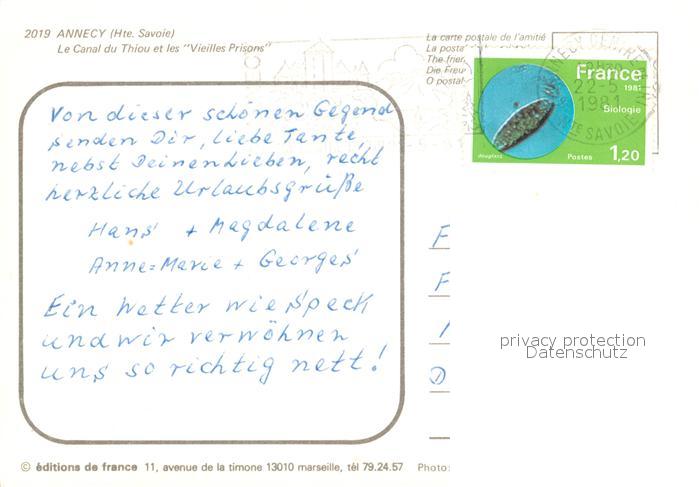 2019 ANNECY (Hte. Savoie)
Le Canal du Thiou et les "Vieilles Prisons"
La carte postale de l'amitié
La posta
The frien
Die Freu
O postal
ANNECY CENTRE
22-5
1981
HTE SAVOIE
France
1981
Biologie
Postes
1,20
Von dieser schönen Gegend
senden Dir, liebe Tante,
nebst Deinen Lieben, recht
herzliche Urlaubsgrüße
Hans + Magdalene
Anne=Marie + Georges
Ein Wetter wie Speck
und wir verwöhnen
uns so richtig nett!
F
F
privacy protection
Datenschutz
© éditions de france 11, avenue de la timone 13010 marseille, tél 79.24.57 Photo: